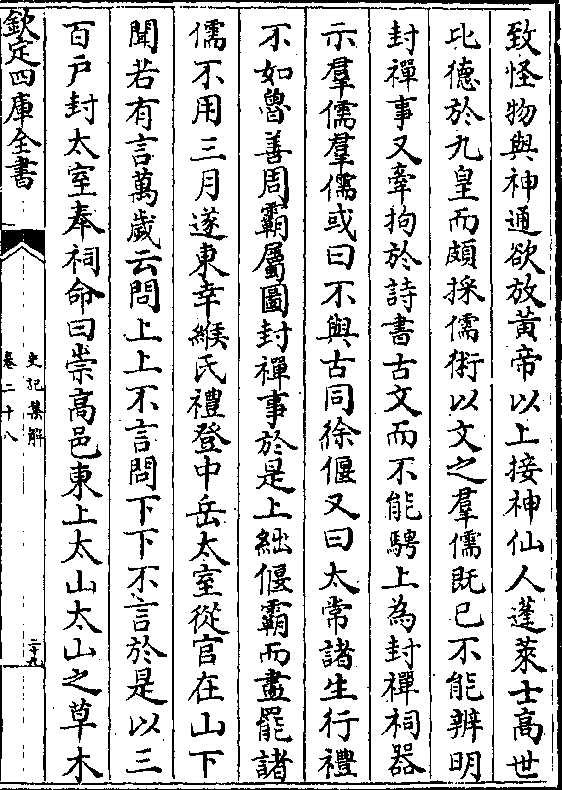 致怪物與神通欲放黄帝以上接神仙人蓬萊士髙世
比德於九皇而頗採儒術以文之羣儒既已不能辨明
封禪事又牽拘於詩書古文而不能騁上為封禪祠器
示羣儒羣儒或曰不與古同徐偃又曰太常諸生行禮
不如魯善周霸屬圖封禪事於是上絀偃霸而盡罷諸
儒不用三月遂東幸緱氏禮登中岳太室從官在山下
聞若有言萬歲云問上上不言問下下不言於是以三
百戸封太室奉祠命曰崇髙邑東上太山太山之草木
欽定四庫全書
史記集解
卷二十八
二十九